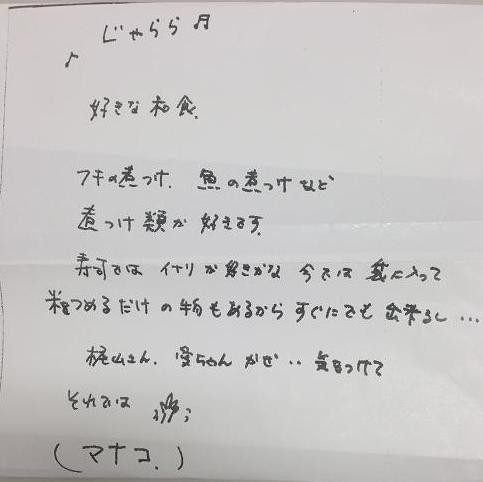 ♪ じゃらら ♬
好きな和食、
フキの煮つけ、魚の煮つけなど
煮つけ類が好きです。
寿司では イナリが好きかな 今では 袋に入って
米をつめるだけの物もあるから すぐにでも 出来るし…
梶山さん、怪ちゃん かぜ‥気をつけて
それでは
(マナコ、)